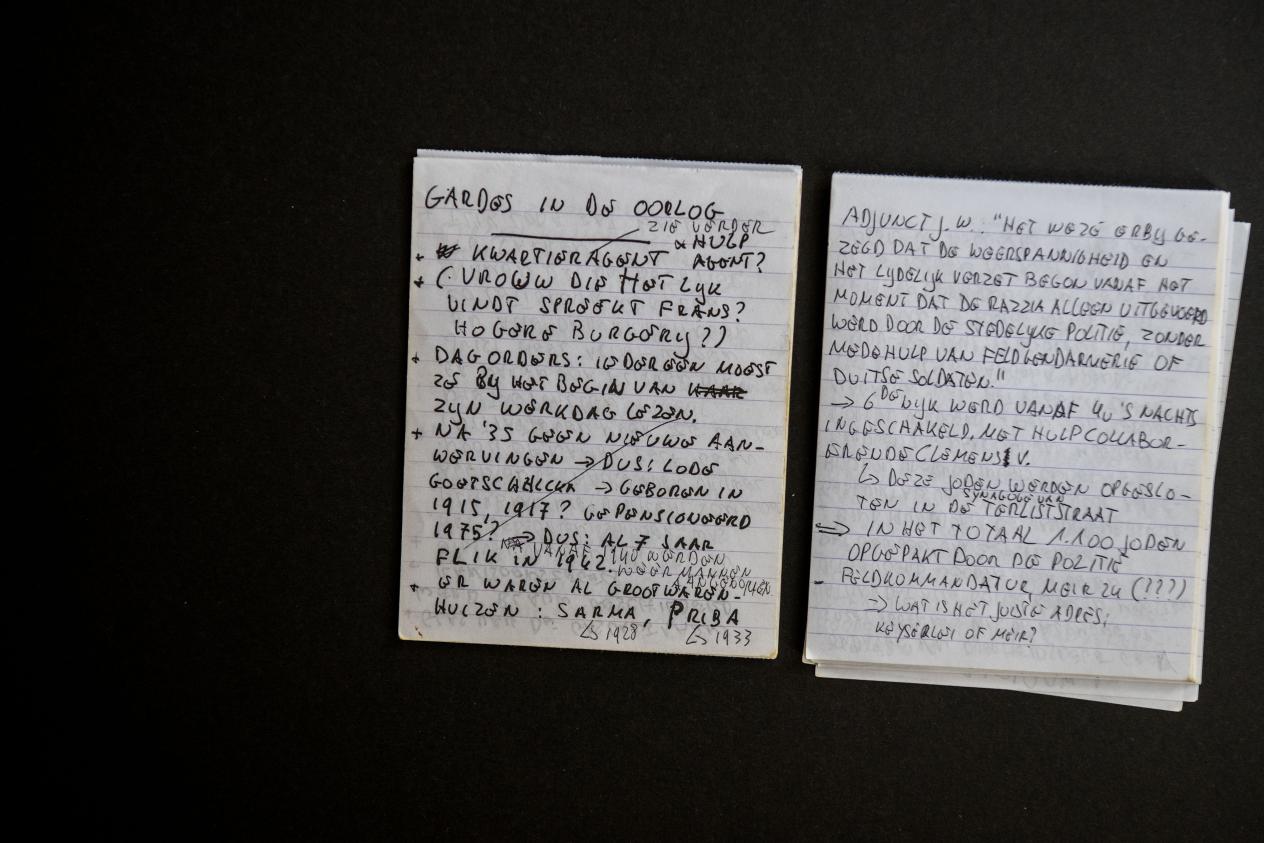 GARDES IN DE OORLOG
ZIE VERDER
& HULP
+ KWARTIERAGENT AGENT?
+ (: VROUW DIE HET LYK
VINDT SPREEKT FRANS?
HOGERE BURGERY?)
+ DAGORDERS: IEDEREEN MOEST
ZE BY HET BEGIN VAN HAAR
ZYN WERKDAG LEZEN.
+ NA '35 GEEN NIEUWE AAN-
WERVINGEN → DUS: LODE
→ GEBOREN IN
1915, 1917? GEPENSIONEERD
1975? → DUS: AL 7 JAAR
FLIK IN 1942. VANAF 1940 WERDEN
WEERMANNEN
AANGENOMEN
+ ER WAREN AL GROOTWAREN-
HUIZEN: SARMA, PRIBA
↳ 1928 ↳ 1933
ADJUNCT J. W.: "HET WEZE ERBY GE-
ZEGD DAT DE WEERSPANNIGHEID EN
HET LYDELYK VERZET BEGON VANAF HET
MOMENT DAT DE RAZZIA ALLEEN UITGEVOERD
WERD DOOR DE STEDELYKE POLITIE, ZONDER
MEDEHULP VAN FELDGENDARMERIE OF
DUITSE SOLDATEN."
→ 6DE WYK WERD VANAF 4U 'S NACHTS
INGESCHAKELD. MET HULP COLLABOR-
ERENDE CLEMENS V.
↳ DEZE JODEN WERDEN OPGESLO-
SYNAGOGE VAN
TEN IN DE TERLISTSTRAAT
⇒ IN HET TOTAAL 1.100 JODEN
OPGEPAKT DOOR DE POLITIE
- FELDKOMMANDATUR, MEIR 24 (???)
→ WAT IS HET JUISTE ADRES:
KEYSERLEI OF MEIR?